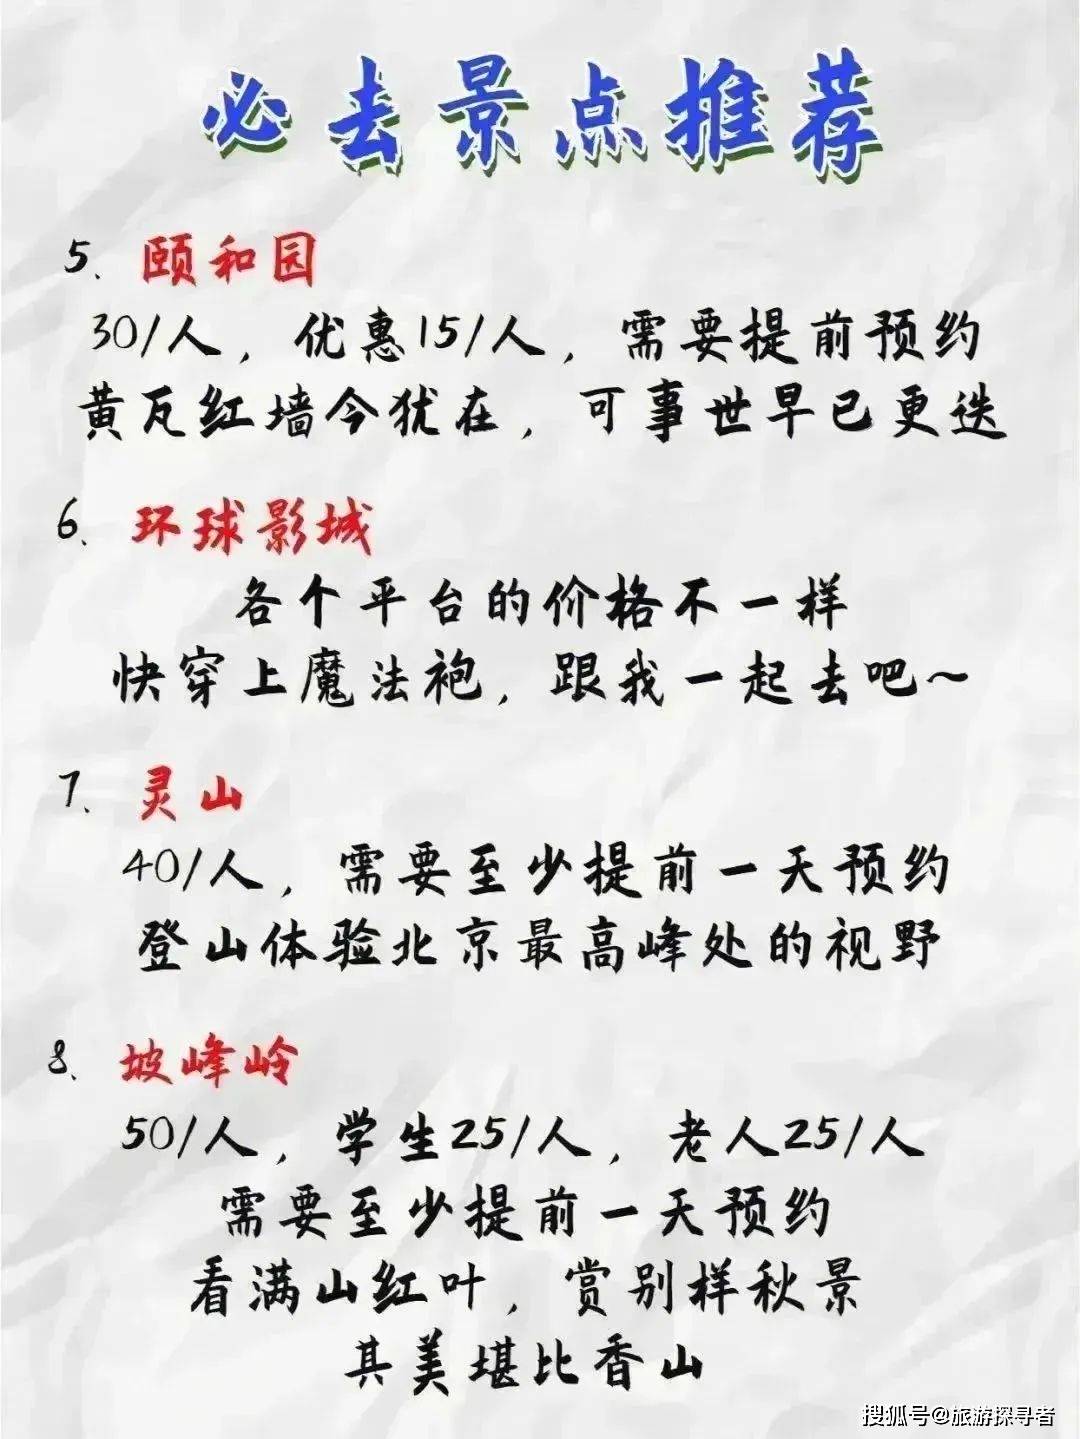 必去景点推荐
5、颐和园
30/人，优惠15/人，需要提前预约
黄瓦红墙今犹在，可事世早已更迭
6、环球影城
各个平台的价格不一样
快穿上魔法袍，跟我一起去吧~
7、灵山
40/人，需要至少提前一天预约
登山体验北京最高峰处的视野
8、坡峰岭
50/人，学生25/人，老人25/人
需要至少提前一天预约
看满山红叶，赏别样秋景
其美堪比香山
搜狐号@旅游探寻者